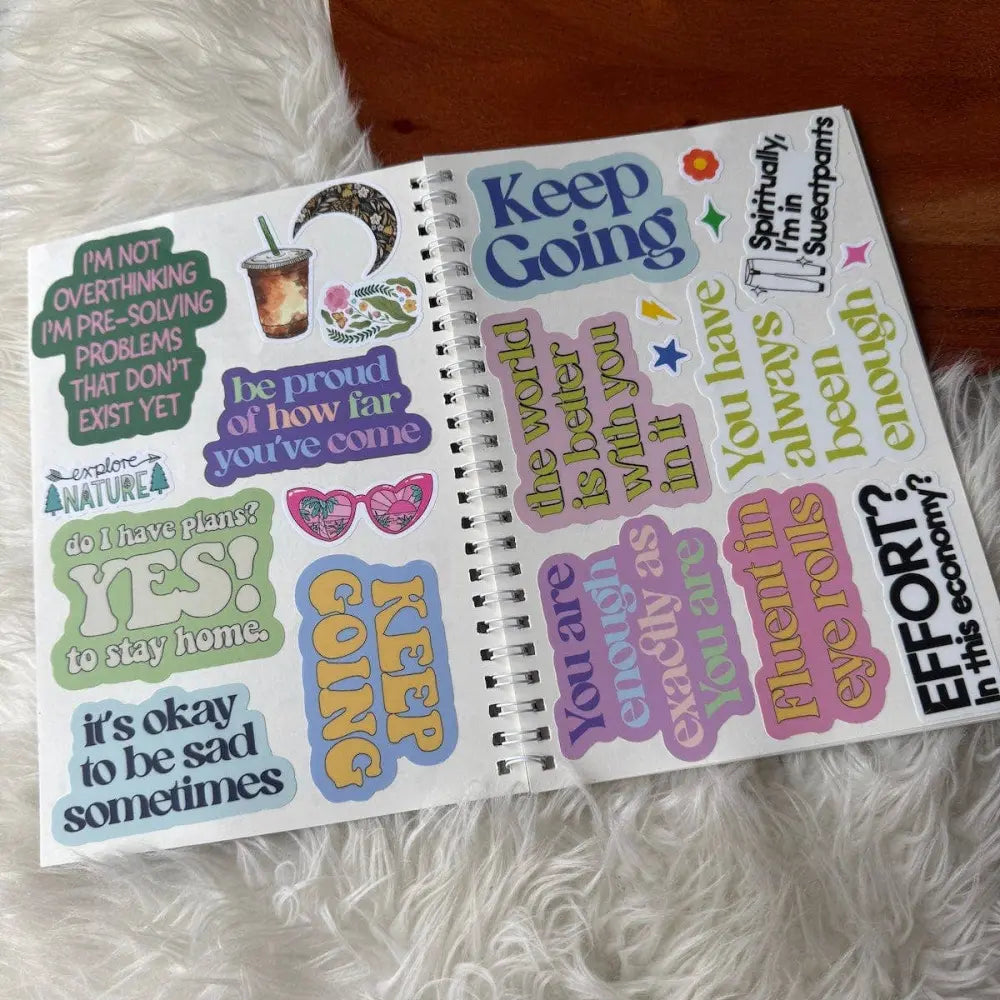 I'M NOT
OVERTHINKING
I'M PRE-SOLVING
PROBLEMS
THAT DON'T
EXIST YET
be proud
of how far
you've come
explore
NATURE
do I have plans?
YES!
to stay home.
KEEP
GOING
it's okay
to be sad
sometimes
Keep
Going
Spiritually,
I'm in
Sweatpants
the world
is better
with you
in it
You have
always
been
enough
You are
enough
exactly as
You are
Fluent in
eye rolls
EFFORT?
In this economy?